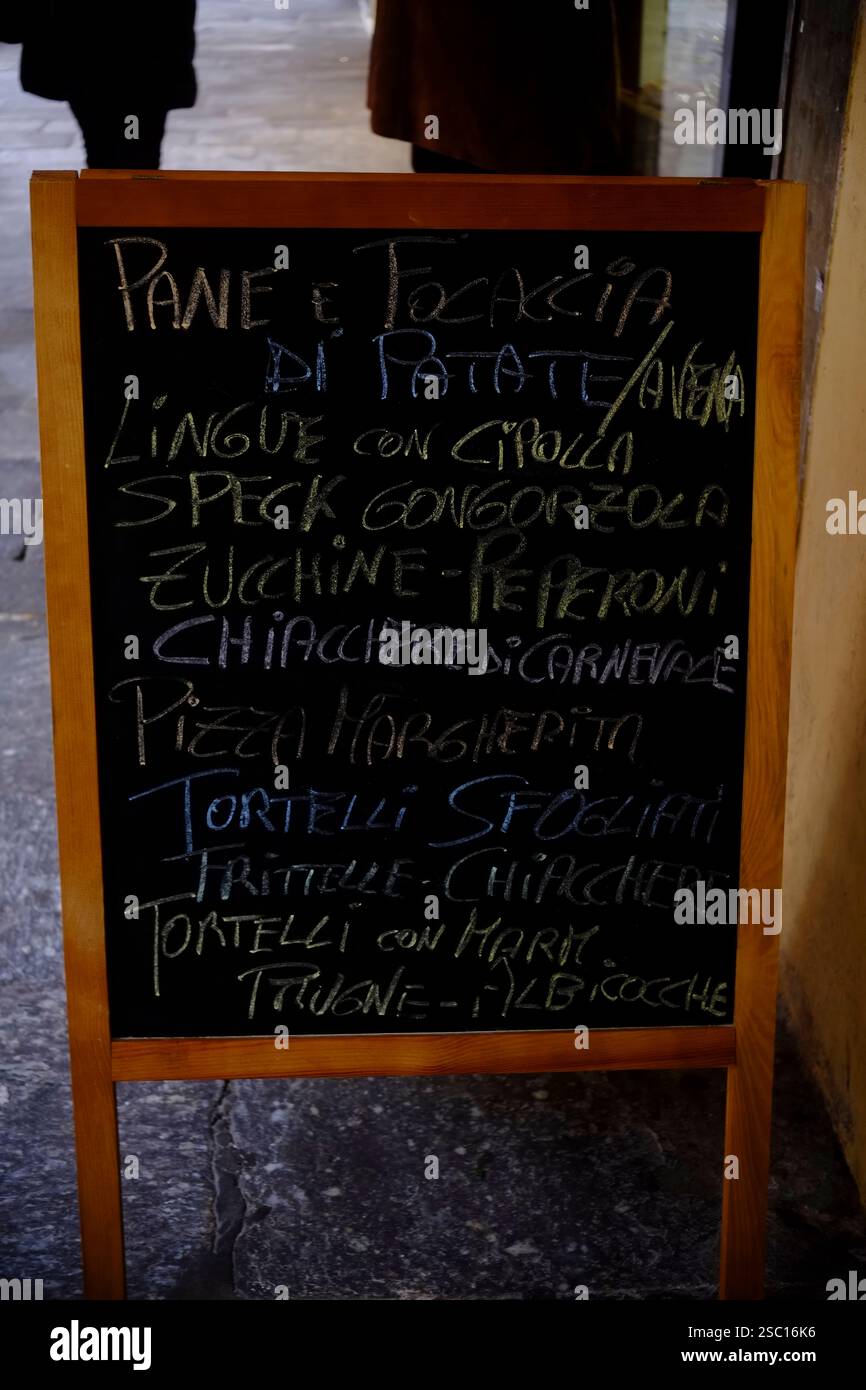 PANE E FOCACCIA
DI PATATE/AVENA
LINGUE CON CIPOLLA
SPECK GONGORZOLA
ZUCCHINE-PEPERONI
CHIACCHERE DI CARNEVALE
PIZZA MARGHERITA
TORTELLI SFOGLIATI
FRITTELLE-CHIACCHERE
TORTELLI CON MARM.
PRUGNE-ALBICOCCHE
alamy
Image ID: 2SC16K6
www.alamy.com